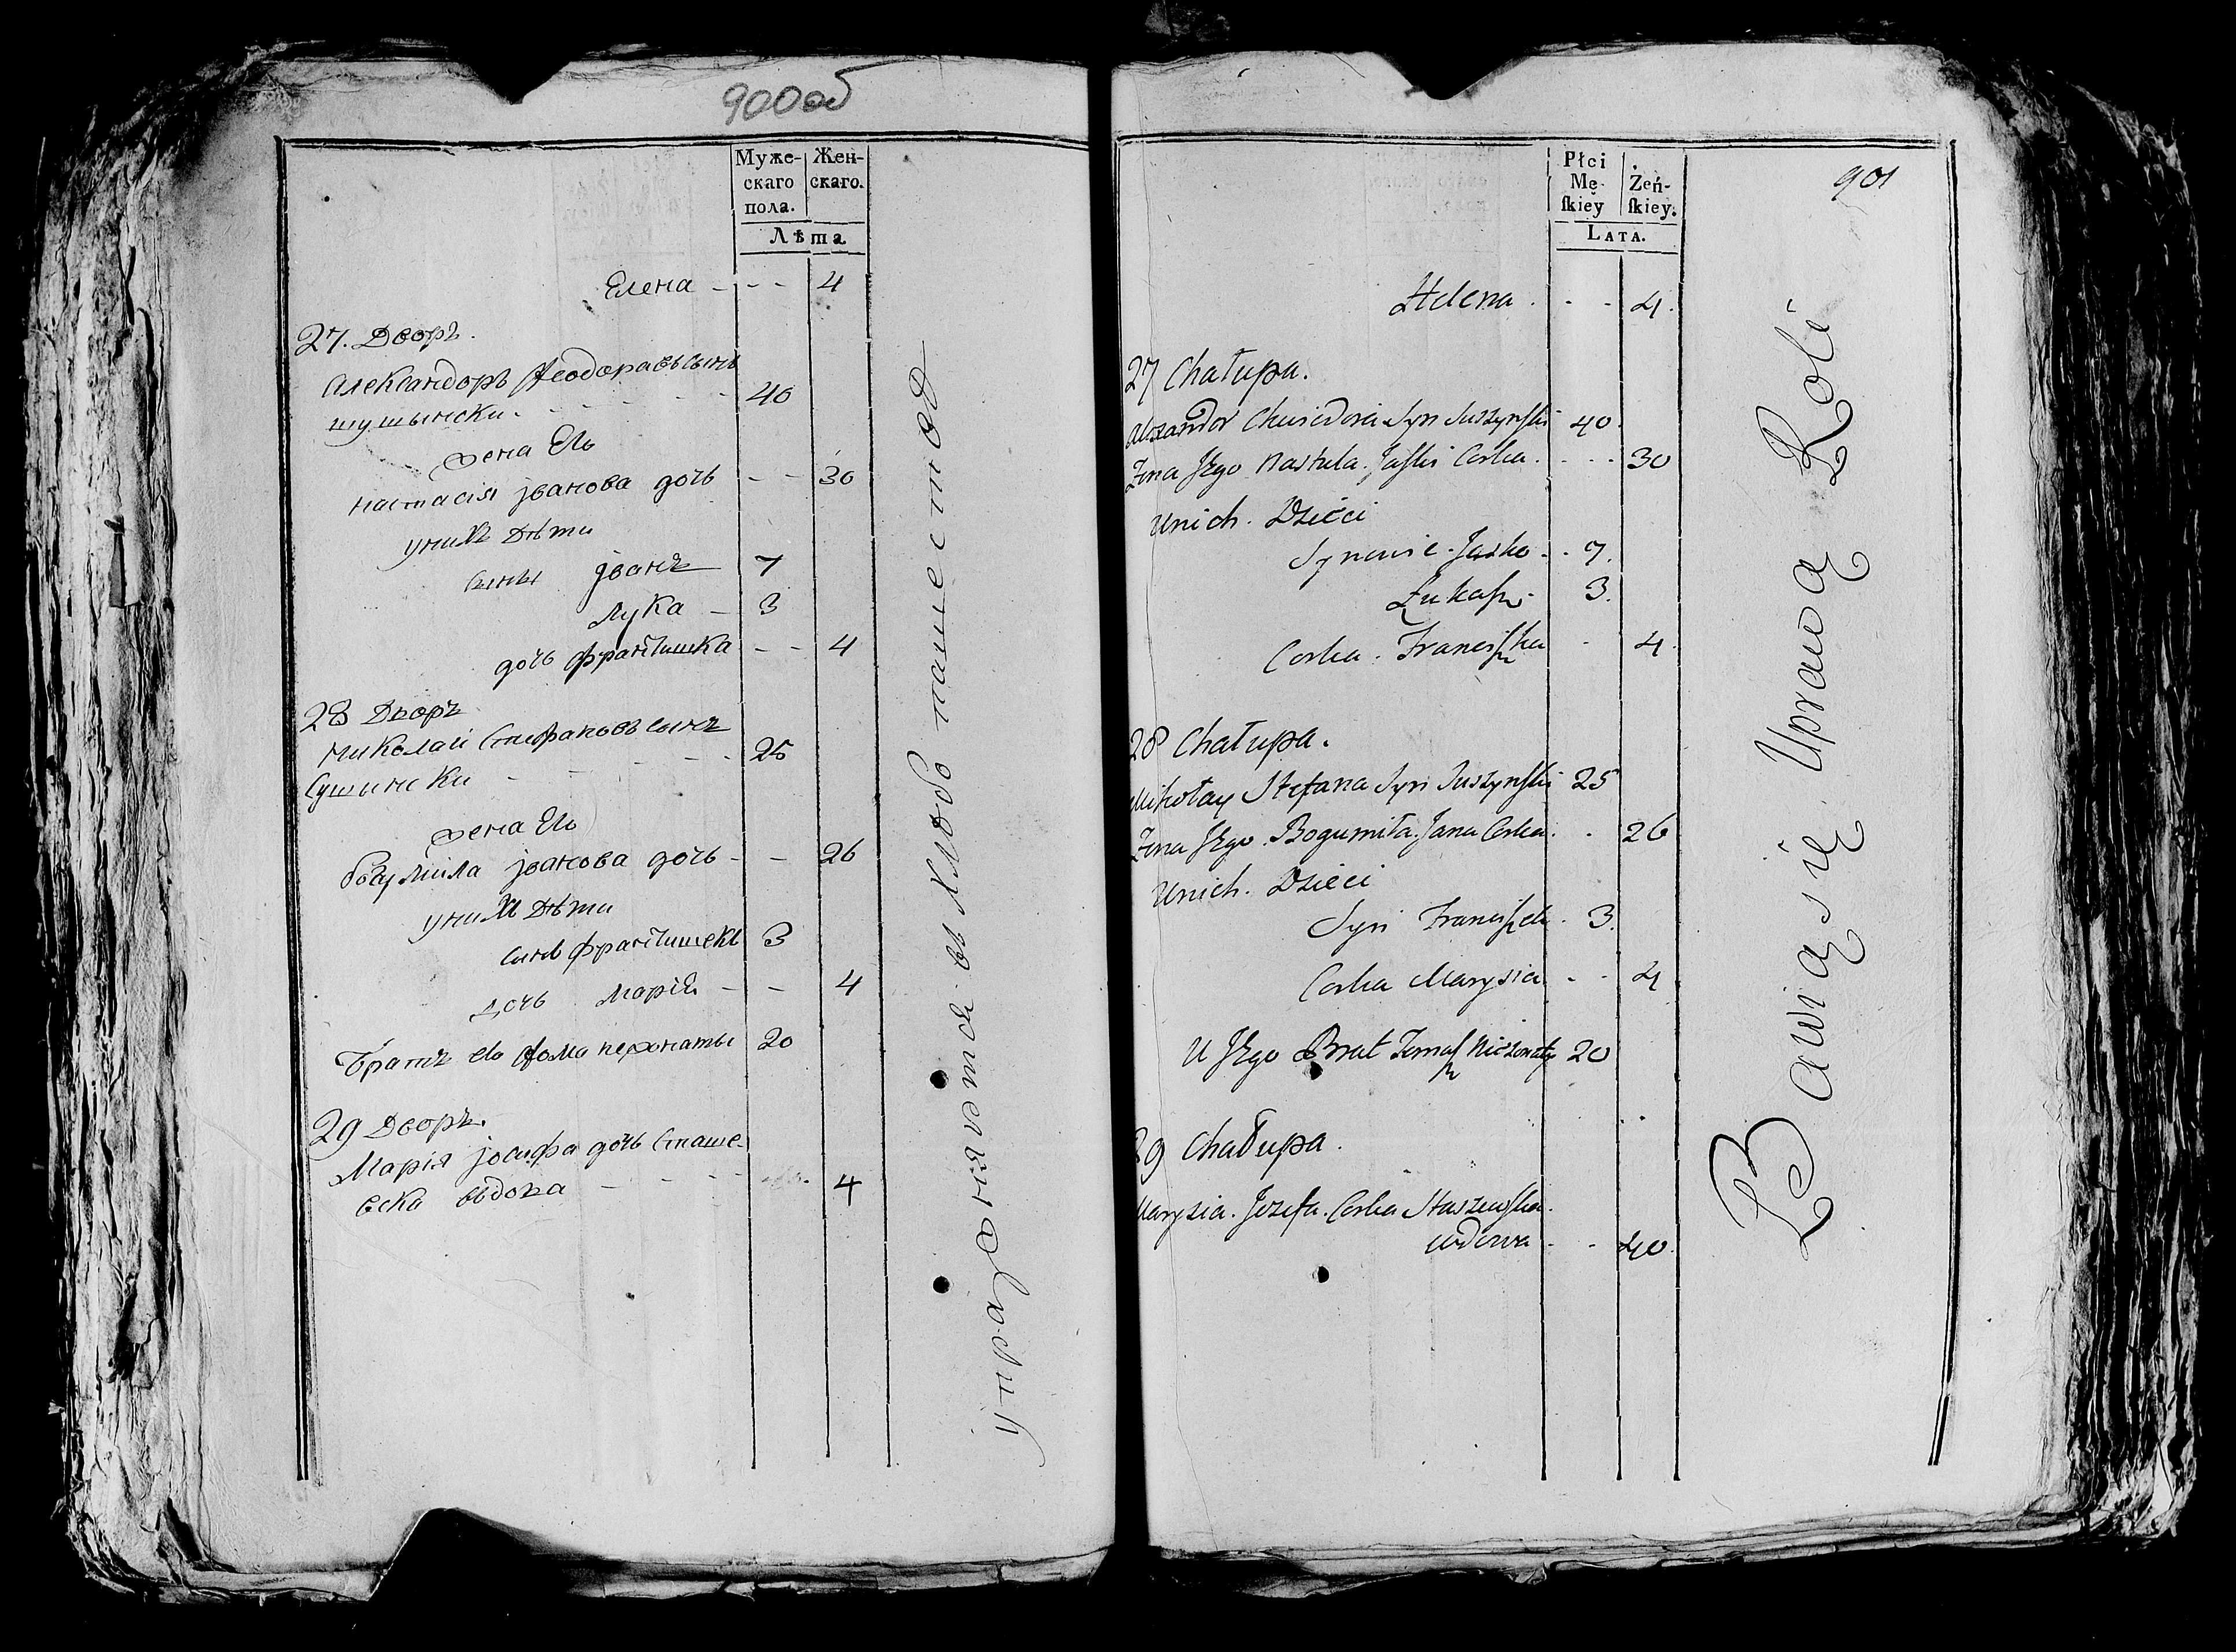 900 об
Муже-
скаго
пола.
Жен-
скаго.
Лѣта.
Елена - - - 4
27. Дворъ.
Александоръ Ѳеодоравъ сынъ
шушынски - - - - - 40
жена Ево
настасія јванова дочь - - 30
унихъ Дѣти
сыны јванъ 7
лука - 3
дочь францишка - - 4
28 Дворъ
николай Стефановъ сынъ
Сушински - - - - - 25
жена Ево
богумила јванова дочь - - 26
унихъ Дѣти
сынъ францишекъ 3
дочь марія - - 4
братъ Ево фома нежонаты 20
29 Дворъ.
Марія јосифа дочь Сташе-
вска вьдова - - - - 4
упражняются въ хлебопашестве
901
Płci
Mę-
ſkiey
Żeń-
ſkiey.
LATA.
Helena . - - 4.
27 Chałupa.
Alexandor Chwiedora Syn Suszynſki 40.
Żona Jego Nastula. Jaſki Corka. - - - 30
Unich. Dzieci
Synowie. Jaśko - - 7.
Łukaſz - 3.
Corka. Franciſzka - 4.
28 Chałupa.
Mikołay Stefana Syn Suszynſki 25
Żona Jego. Bogumiła. Jana Corka. - 26
Unich. Dzieci
Syn Franciſzek - 3.
Corka Marysia - - 4
U Jego Brat Tomaſz Nieżonaty 20
29 Chałupa.
Marysia. Jozefa. Corka Staszewſka.
wdowa - - 40.
Bawiąsię Uprawą Roli